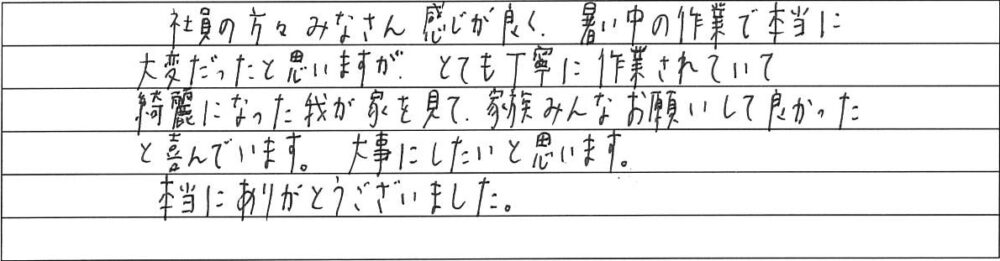 社員の方々みなさん感じが良く、暑い中の作業で本当に
大変だったと思いますが、とても丁寧に作業されていて
綺麗になった我が家を見て、家族みんなお願いして良かった
と喜んでいます。大事にしたいと思います。
本当にありがとうございました。